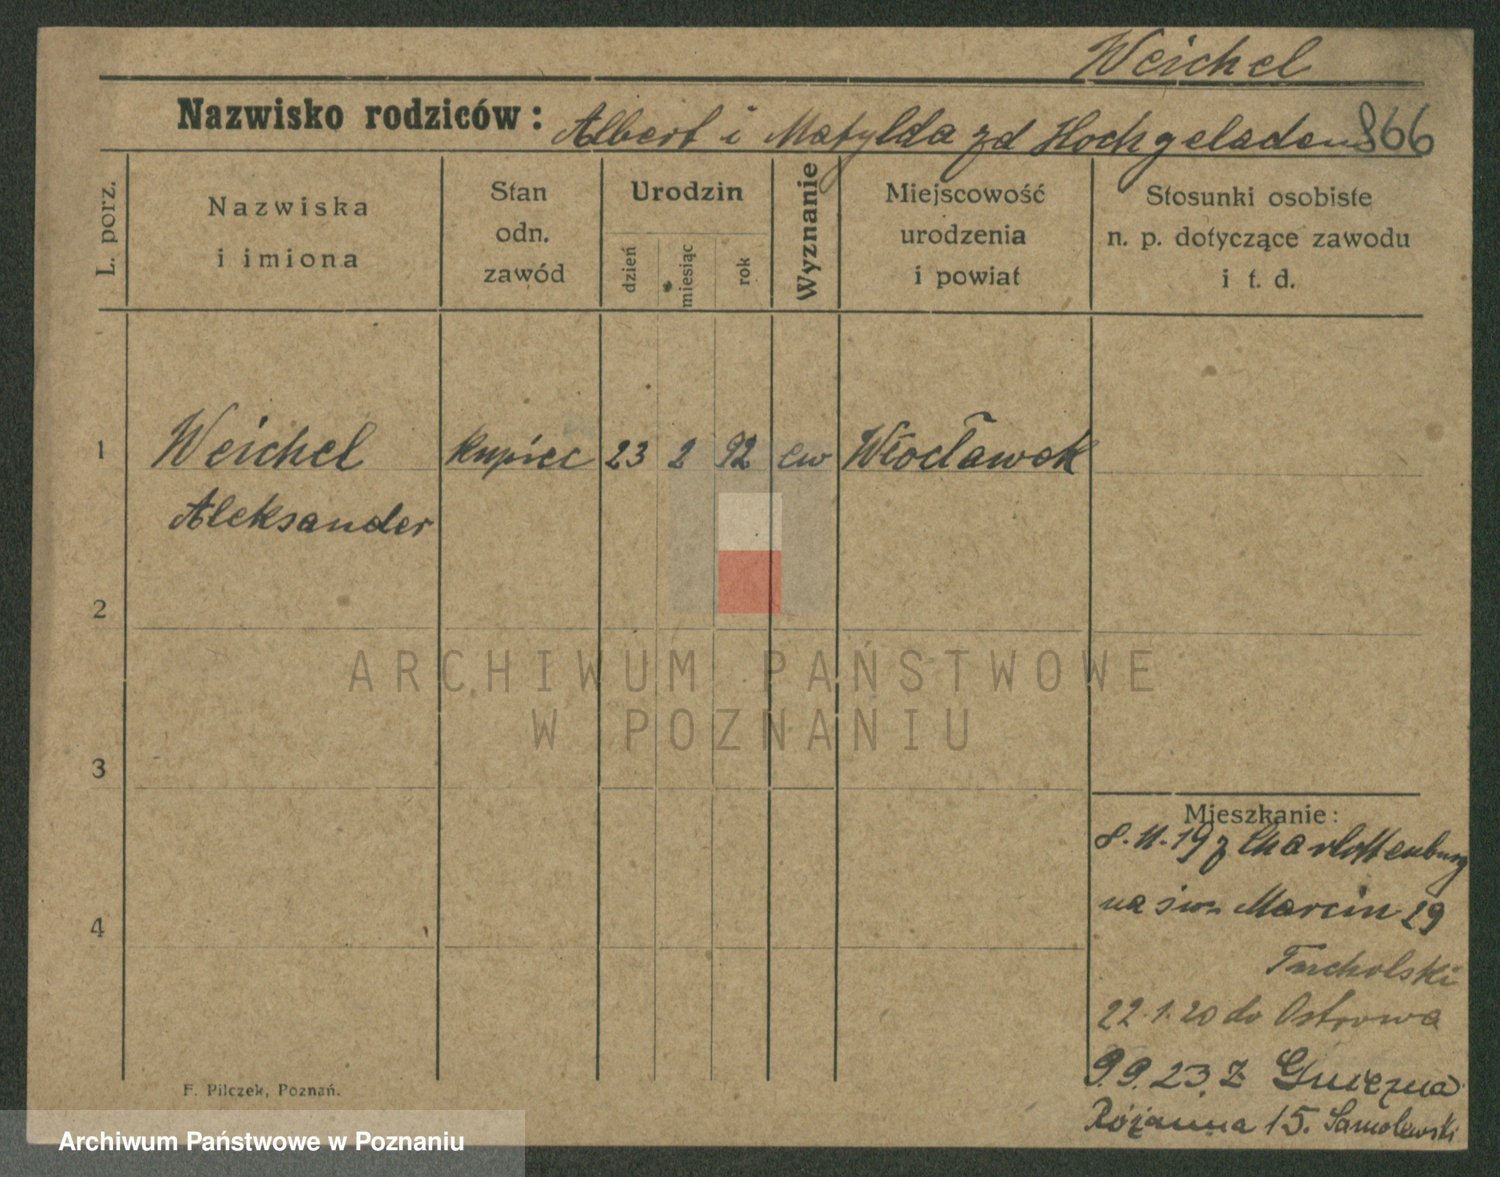 Weichel
Nazwisko rodziców: Albert i Matylda zd Hochgeladen 866
L. porz.
Nazwiska
i imiona
Stan
odn.
zawód
Urodzin
dzień
miesiąc
rok
Wyznanie
Miejscowość
urodzenia
i powiat
Stosunki osobiste
n. p. dotyczące zawodu
i t. d.
1 Weichel kupiec 23 2 92 ew Włocławek
Aleksander
2
3
4
Mieszkanie:
8.11.19 z Charlottenburg
na św. Marcin 29
Tucholski
22.1.20 do Ostrowa
9.9.23. z Gniezna
Różanna 15. Samolewski
F. Pilczek, Poznań.
ARCHIWUM PAŃSTWOWE
W POZNANIU
Archiwum Państwowe w Poznaniu